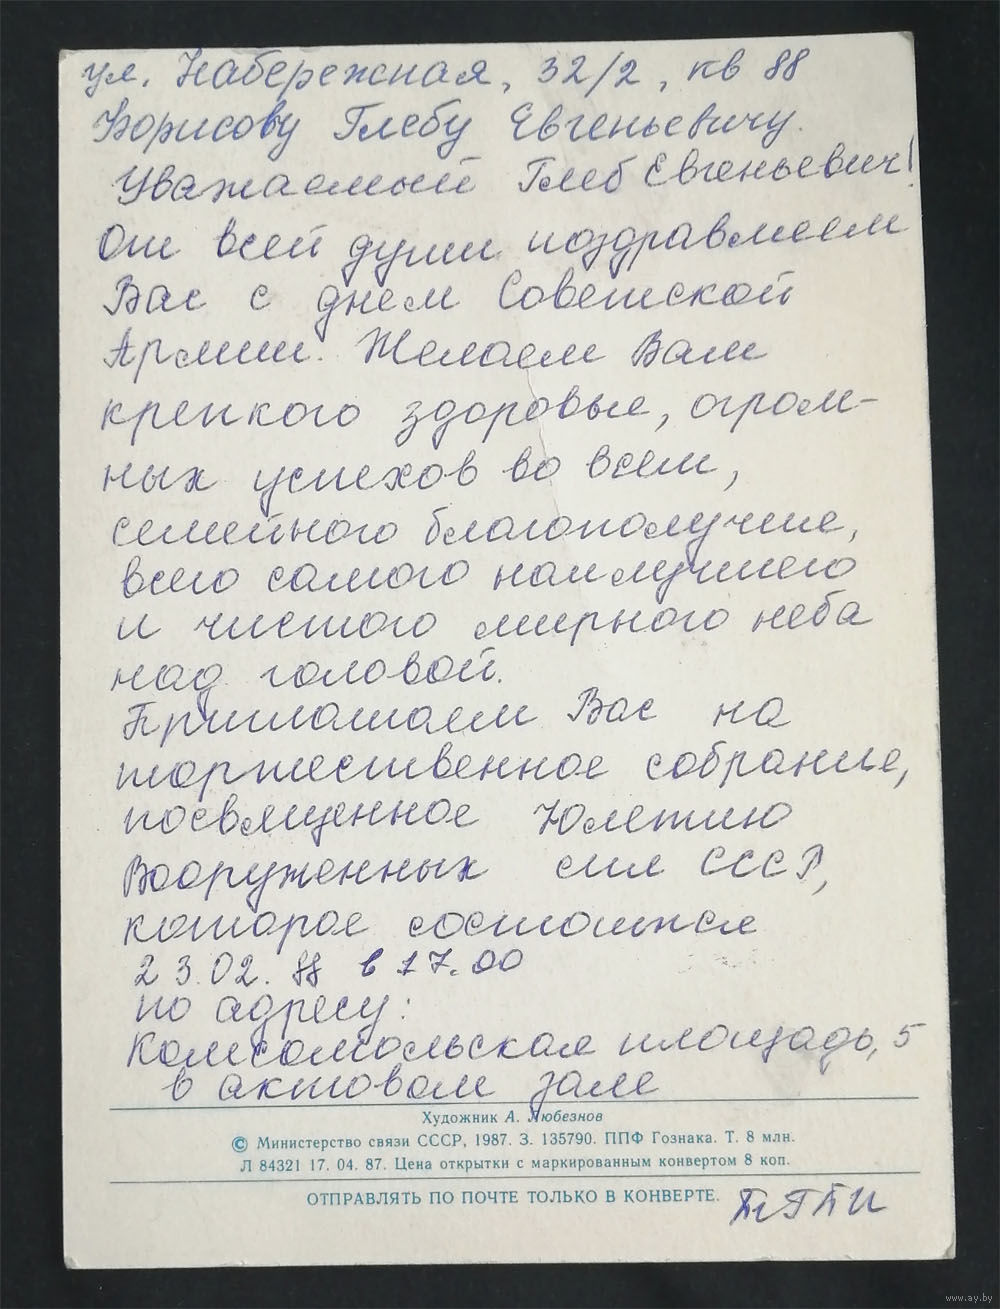 ул. Набережная, 32/2, кв 88
Борисову Глебу Евгеньевичу.
Уважаемый Глеб Евгеньевич!
От всей души поздравляем
Вас с днем Советской
Армии. Желаем Вам
крепкого здоровья, огром-
ных успехов во всем,
семейного благополучия,
всего самого наилучшего
и чистого мирного неба
над головой.
Приглашаем Вас на
торжественное собрание,
посвященное 70летию
Вооруженных сил СССР,
которое состоится
23.02.88 в 17.00
по адресу:
Комсомольская площадь, 5
в актовом зале
Художник А. Любезнов
© Министерство связи СССР, 1987. З. 135790. ППФ Гознака. Т. 8 млн.
Л 84321 17. 04. 87. Цена открытки с маркированным конвертом 8 коп.
ОТПРАВЛЯТЬ ПО ПОЧТЕ ТОЛЬКО В КОНВЕРТЕ.
www.ay.by